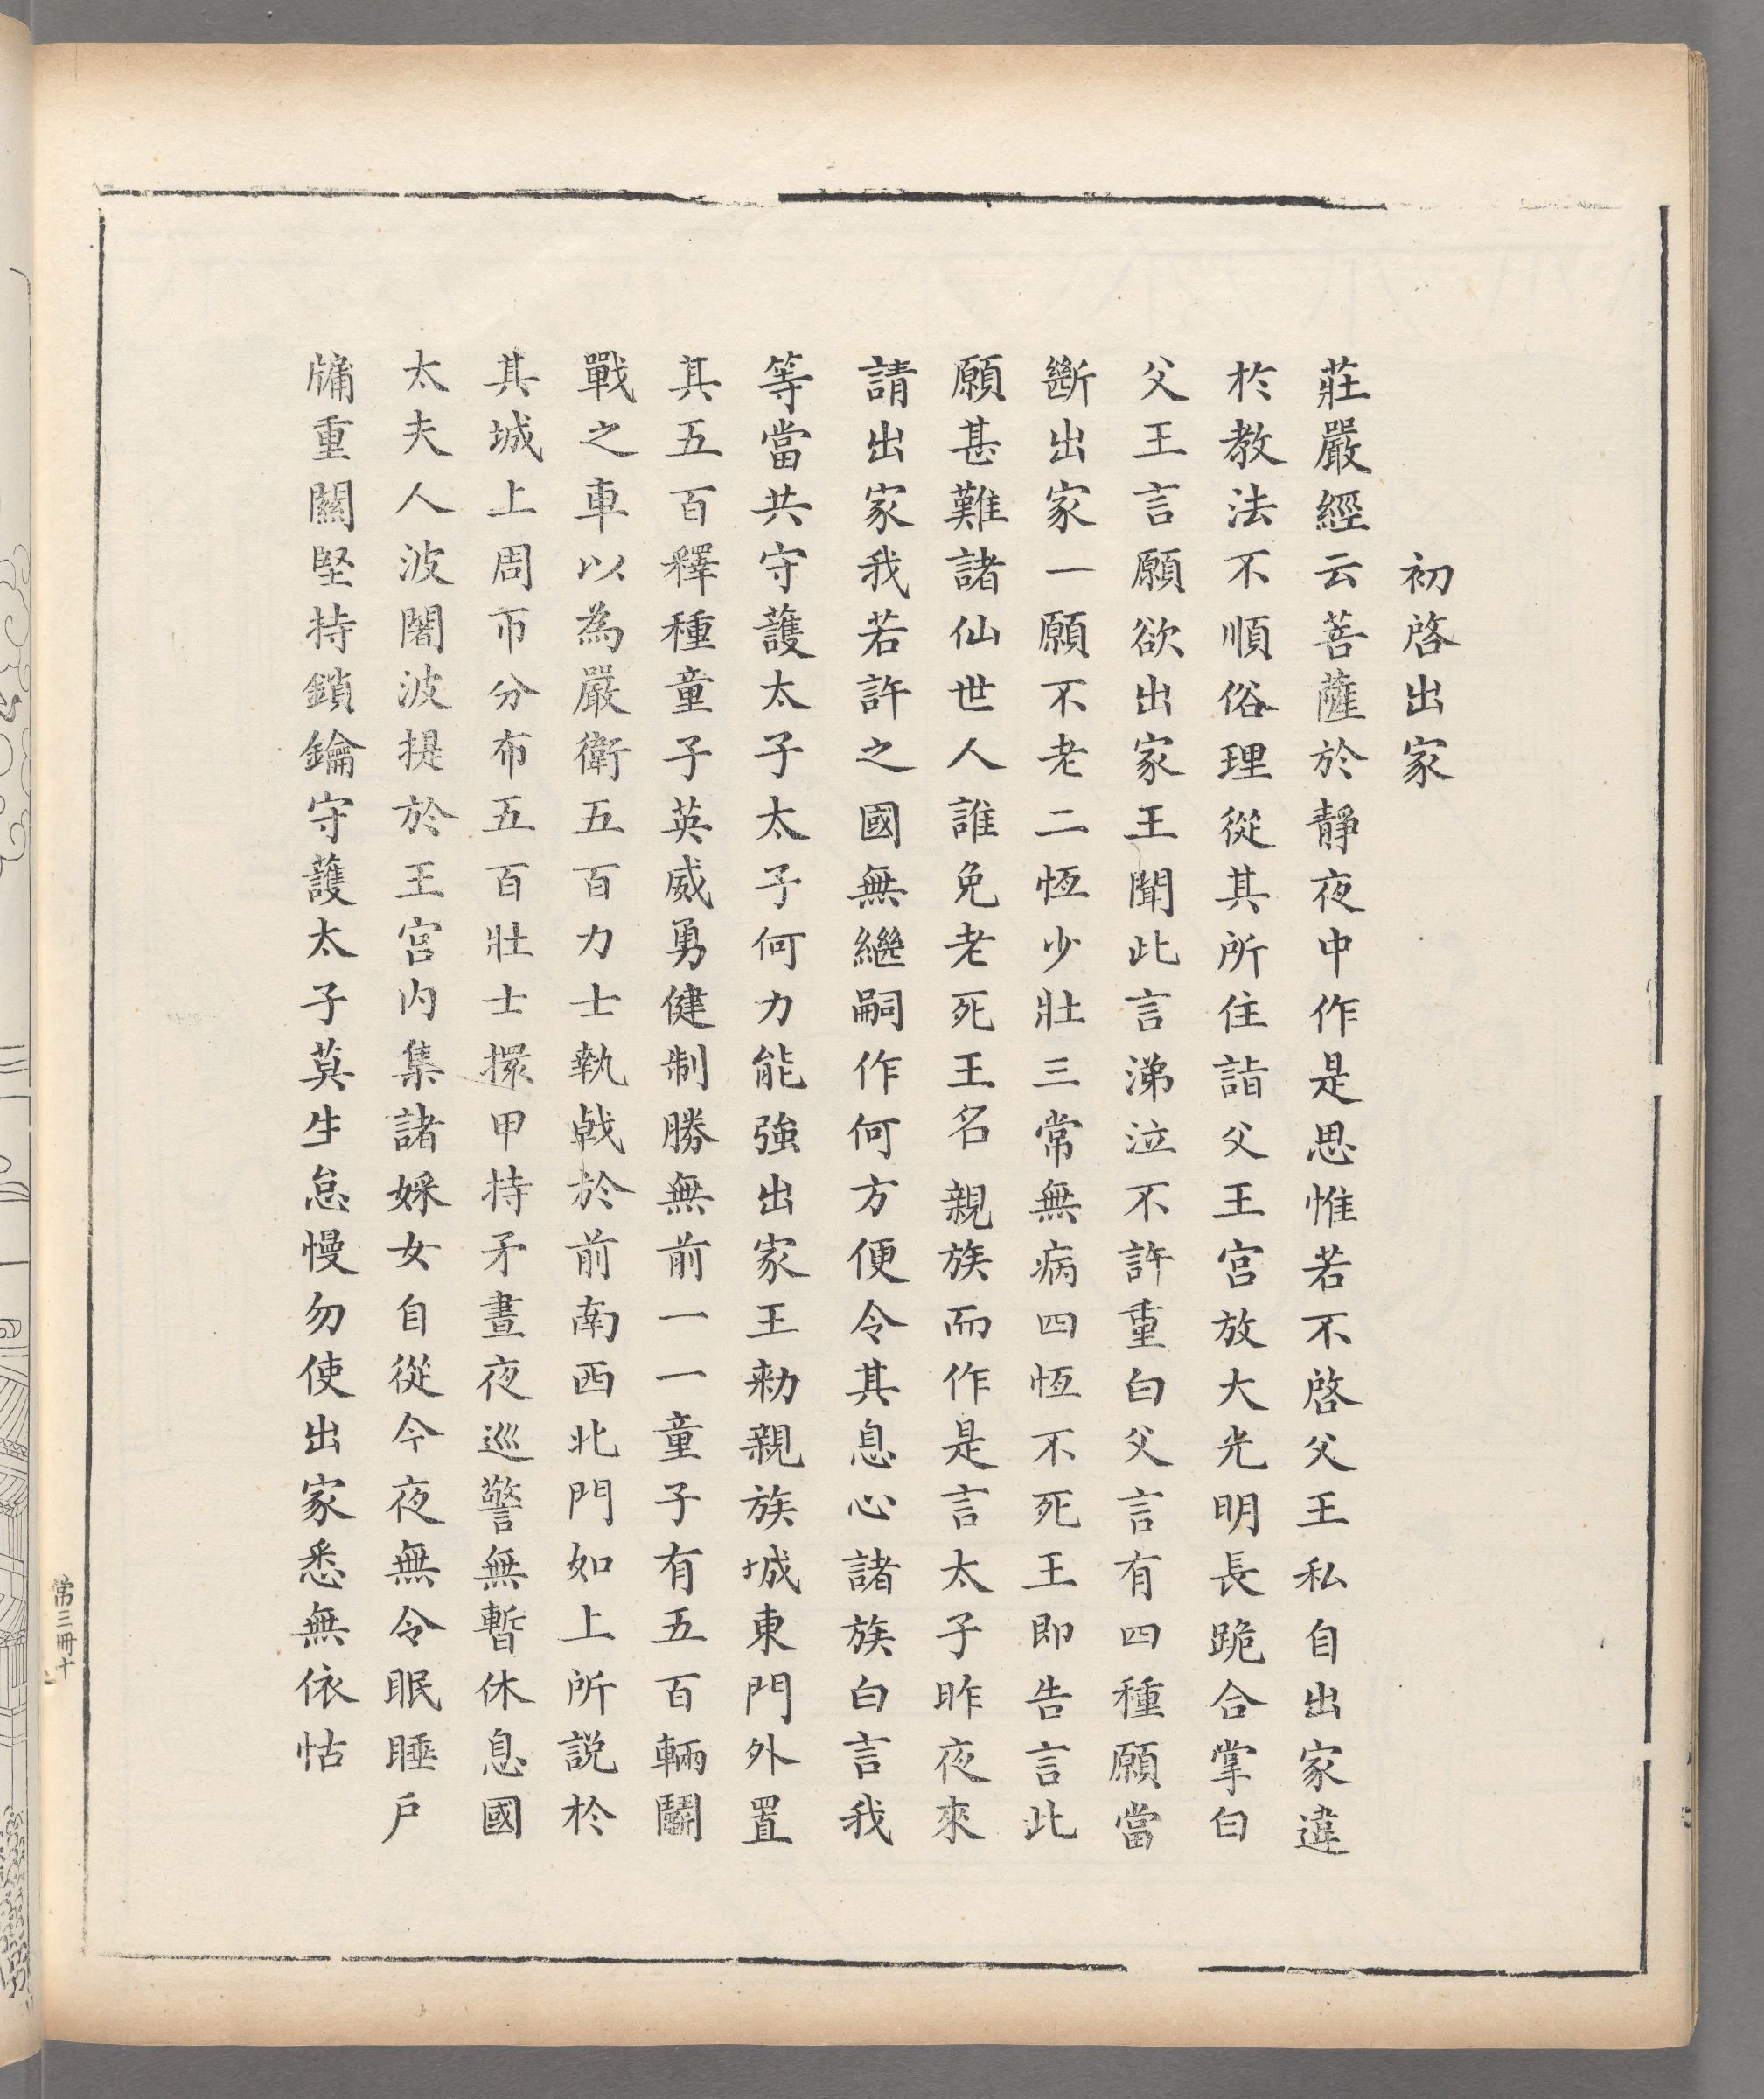 初啓出家
莊嚴經云菩薩於靜夜中作是思惟若不啓父王私自出家違
於教法不順俗理從其所住詣父王宮放大光明長跪合掌白
父王言願欲出家王聞此言涕泣不許重白父言有四種願當
斷出家一願不老二恆少壯三常無病四恆不死王即告言此
願甚難諸仙世人誰免老死王名親族而作是言太子昨夜來
請出家我若許之國無繼嗣作何方便令其息心諸族白言我
等當共守護太子太子何力能強出家王勑親族城東門外置
其五百釋種童子英威勇健制勝無前一一童子有五百輛鬭
戰之車以為嚴衛五百力士執戟於前南西北門如上所說於
其城上周帀分布五百壯士擐甲持矛晝夜巡警無暫休息國
太夫人波闍波提於王宮內集諸婇女自從今夜無令眠睡戶
牖重關堅持鎖鑰守護太子莫生怠慢勿使出家悉無依怙
第三冊十